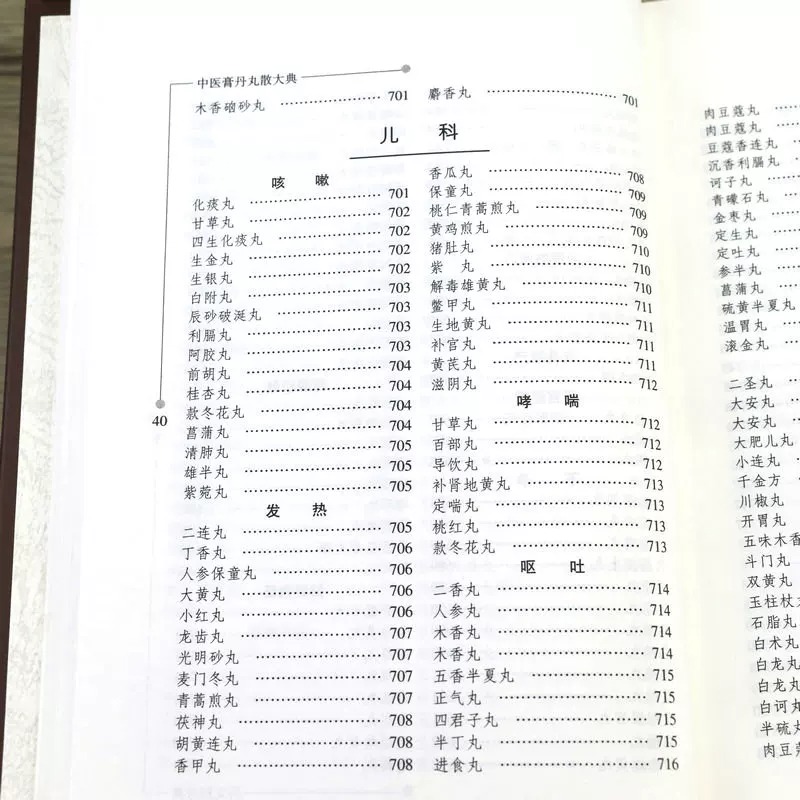 中医膏丹丸散大典
木香硇砂丸 ………………… 701
麝香丸 ………………… 701
儿 科
咳 嗽
化痰丸 ………………… 701
甘草丸 ………………… 702
四生化痰丸 ………………… 702
生金丸 ………………… 702
生银丸 ………………… 702
白附丸 ………………… 703
辰砂破涎丸 ………………… 703
利膈丸 ………………… 703
阿胶丸 ………………… 703
前胡丸 ………………… 704
桂杏丸 ………………… 704
款冬花丸 ………………… 704
菖蒲丸 ………………… 704
清肺丸 ………………… 705
雄半丸 ………………… 705
紫菀丸 ………………… 705
发 热
二连丸 ………………… 705
丁香丸 ………………… 706
人参保童丸 ………………… 706
大黄丸 ………………… 706
小红丸 ………………… 706
龙齿丸 ………………… 707
光明砂丸 ………………… 707
麦门冬丸 ………………… 707
青蒿煎丸 ………………… 707
茯神丸 ………………… 708
胡黄连丸 ………………… 708
香甲丸 ………………… 708
40
香瓜丸 ………………… 708
保童丸 ………………… 709
桃仁青蒿煎丸 ………………… 709
黄鸡煎丸 ………………… 709
猪肚丸 ………………… 710
紫 丸 ………………… 710
解毒雄黄丸 ………………… 710
鳖甲丸 ………………… 711
生地黄丸 ………………… 711
补宫丸 ………………… 711
黄芪丸 ………………… 711
滋阴丸 ………………… 712
哮 喘
甘草丸 ………………… 712
百部丸 ………………… 712
导饮丸 ………………… 712
补肾地黄丸 ………………… 713
定喘丸 ………………… 713
桃红丸 ………………… 713
款冬花丸 ………………… 713
呕 吐
二香丸 ………………… 714
人参丸 ………………… 714
木香丸 ………………… 714
木香丸 ………………… 714
五香半夏丸 ………………… 715
正气丸 ………………… 715
四君子丸 ………………… 715
半丁丸 ………………… 715
进食丸 ………………… 716
肉豆蔻丸
肉豆蔻丸
豆蔻香连丸
沉香利膈丸
诃子丸
青礞石丸
金枣丸
定生丸
定吐丸
参半丸
菖蒲丸
硫黄半夏丸
温胃丸
滚金丸
二圣丸
大安丸
大安丸
大肥儿丸
小连丸
千金方
川椒丸
开胃丸
五味木香
斗门丸
双黄丸
玉柱杖
石脂丸
白术丸
白龙丸
白龙丸
白诃丸
半硫丸
肉豆蔻